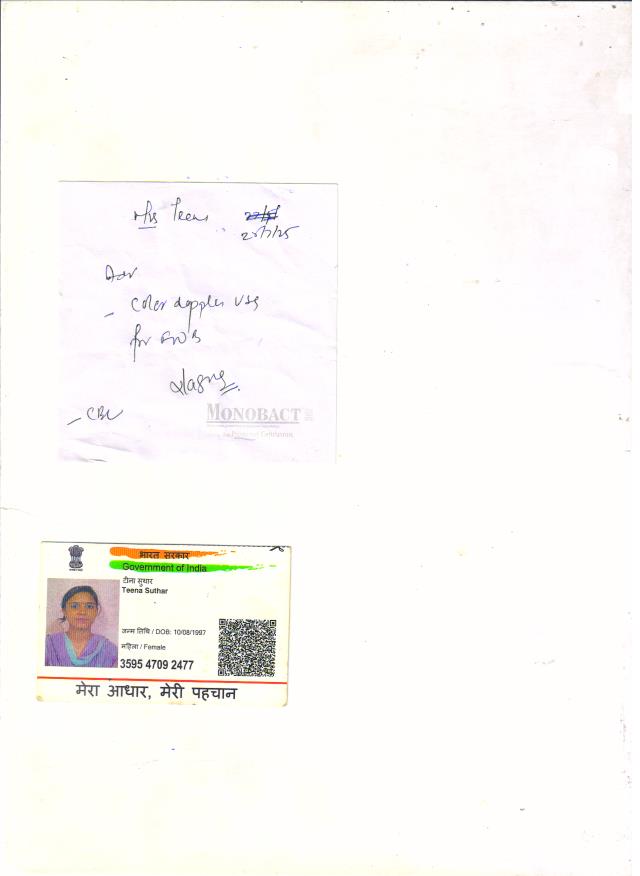 Mrs Teena
Adv
- Color doppler USG
for FWB
- CBC
MONOBACT
भारत सरकार
Government of India
टीना सुथार
Teena Suthar
जन्म तिथि / DOB: 10/08/1997
महिला / Female
3595 4709 2477
मेरा आधार, मेरी पहचान